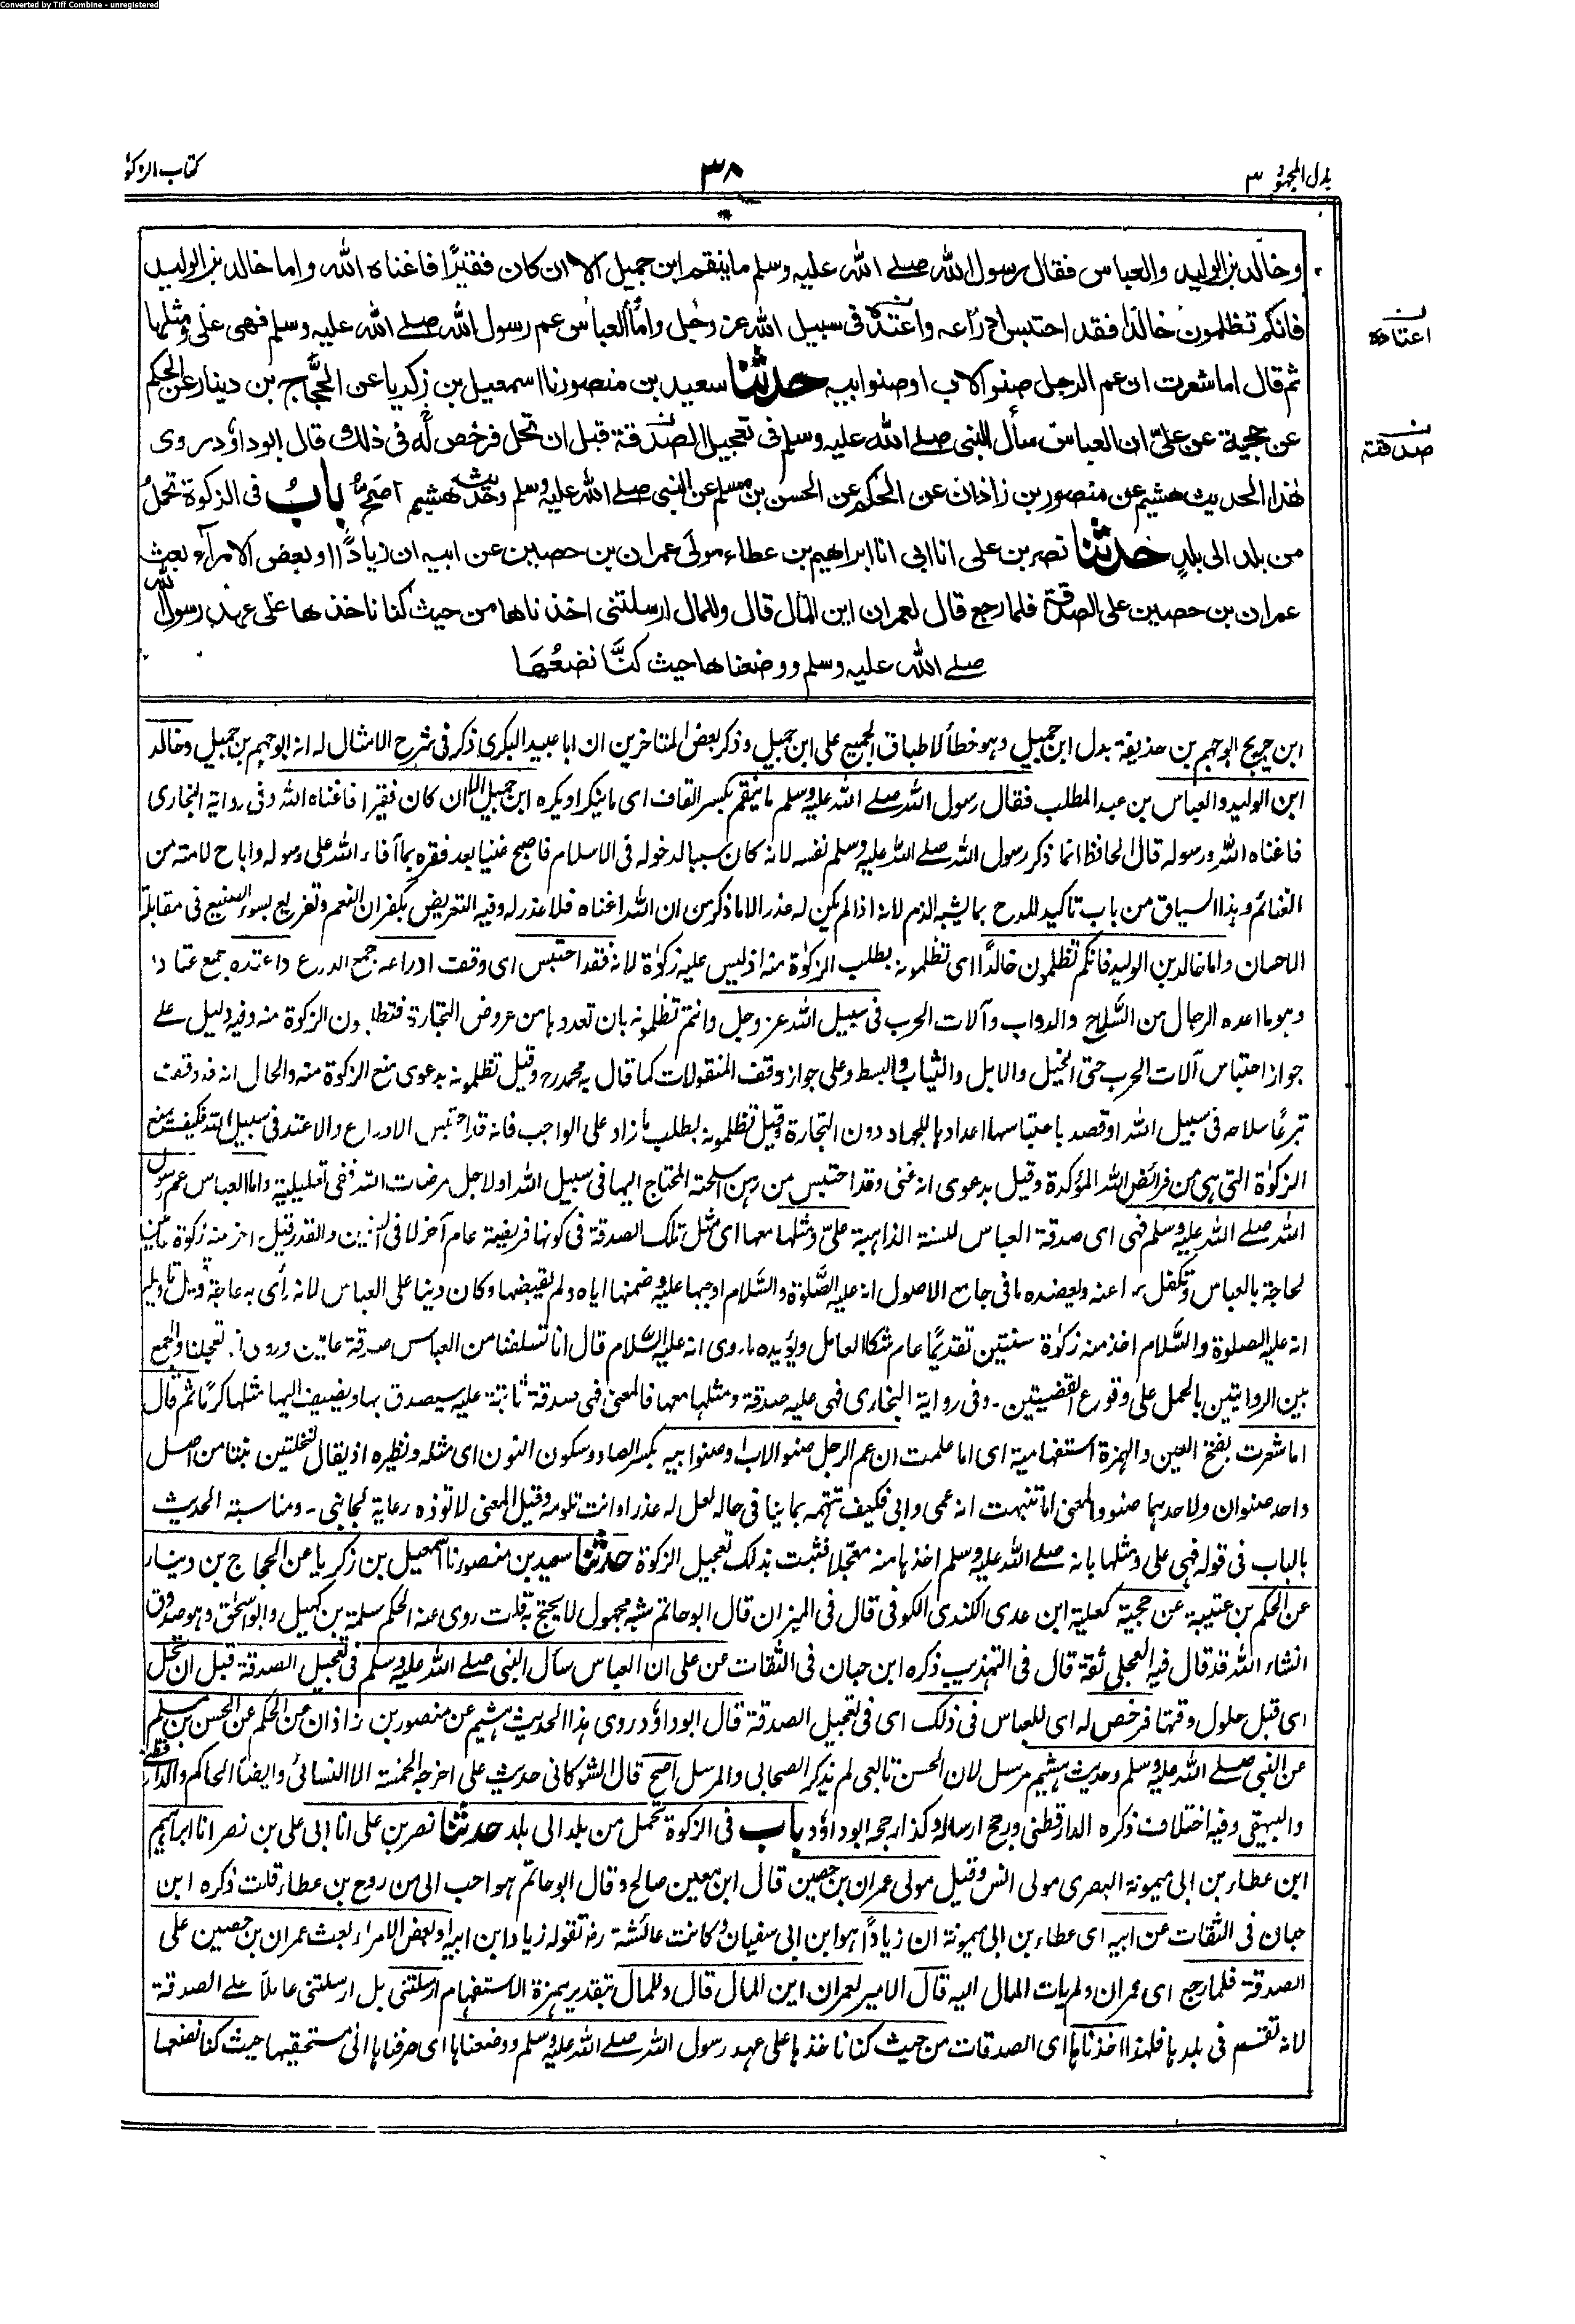 Converted by Tiff Combine - unregistered
بذل المجهود ٣
٣٨
كتاب الزكوة
وخالد بن الوليد والعباس فقال رسول الله صلے الله عليه وسلم ما ينقم ابن جميل الا ان كان فقيرًا فاغناه الله واما خالد بن الوليد
فانكم تظلمون خالدًا فقد احتبس ادراعه واعتده فى سبيل الله عز وجل واما العباس عم رسول الله صلے الله عليه وسلم فهى علىّ ومثلها
ثم قال اما شعرت ان عم الرجل صنو الاب او صنو ابيه حدثنا سعيد بن منصور نا اسمعيل بن زكريا عن الحجّاج بن دينار عن الحكم
عن حجية عن علىّ ان العباس سأل النبى صلے الله عليه وسلم فى تعجيل الصدقة قبل ان تحل فرخص له فى ذلك قال ابو داؤد روى
هذا الحديث هشيم عن منصور بن زاذان عن الحكم عن الحسن بن مسلم عن النبى صلے الله عليه وسلم وحديث هشيم اصح باب فى الزكوة تحمل
من بلد الى بلد حدثنا نصر بن على انا ابى انا ابراهيم بن عطاء مولى عمران بن حصين عن ابيه ان زيادًا او بعض الامرآء بعث
عمران بن حصين على الصدقة فلما رجع قال لعمران اين المال قال وللمال ارسلتنى اخذناها من حيث كنا ناخذها على عهد رسول الله
صلے الله عليه وسلم ووضعناها حيث كنّا نضعُهَا
اعتاده
صدقته
ابن جريج ابو جهم بن حذيفة بدل ابن جميل وهو خطأ لاطباق الجميع على ابن جميل وذكر بعض المتاخرين ان ابا عبيد البكرى ذكر فى شرح الامثال له انه ابو جهم بن جميل وخالد
ابن الوليد والعباس بن عبد المطلب فقال رسول الله صلے الله عليه وسلم ما ينقم بكسر القاف اى ما ينكر او يكره ابن جميل الا ان كان فقيرا فاغناه الله وفى رواية البخارى
فاغناه الله ورسوله قال الحافظ انما ذكر رسول الله صلے الله عليه وسلم نفسه لانه كان سببا لدخوله فى الاسلام فاصبح غنيا بعد فقره بما آفاء الله على رسوله واباح لامته من
الغنائم وهذا السياق من باب تاكيد المدح بما يشبه الذم لانه اذا لم يكن له عذر الا ما ذكر من ان الله اغناه فلا عذر له وفيه التعريض بكفران النعم وتقريع بسوء الصنيع فى مقابلة
الاحسان واما خالد بن الوليد فانكم تظلمون خالدًا اى تظلمونه بطلب الزكوٰة منه اذ ليس عليه زكوٰة لانه فقد احتبس اى وقف ادراعه جمع الدرع واعتده جمع عتاد
وهو ما اعده الرجال من السّلاح والدواب وآلات الحرب فى سبيل الله عز وجل وانتم تظلمونه بان تعدوها من عروض التجارة فتطلبون الزكوة منه وفيه دليل على
جواز احتباس آلات الحرب حتى الخيل والابل والثياب والبسط وعلى جواز وقف المنقولات كما قال به محمد رح وقيل تظلمونه بدعوى منع الزكوة منه والحال انه قد وقف
تبرعًا سلاحه فى سبيل الله او قصد باحتباسها اعدادها للجهاد دون التجارة وقيل تظلمونه بطلب ما زاد على الواجب فانه قد احتبس الادراع والاعتد فى سبيل الله فكيف يمنع
الزكوٰة التى هى من فرائض الله المؤكدة وقيل بدعوى انه غنى وقد احتبس من رهن اسلحته المحتاج اليها فى سبيل الله او لاجل مرضات الله ففى تعليلية واما العباس عم رسول
الله صلے الله عليه وسلم فهى اى صدقة العباس للسنة الذاهبة علىّ ومثلها معها اى مثل تلك الصدقة فى كونها فريضة عام آخر لا فى السن والقدر وقيل اخر منه زكوة عامين
لحاجة بالعباس وتكفل بها عنه ويعضده ما فى جامع الاصول انه عليه الصّلوٰة والسّلام اوجبها عليه وضمنها اياه ولم يقبضها وكان دينا على العباس لانه رأى به حاجة وقيل تاويله
انه عليه الصلوة والسّلام اخذ منه زكوٰة سنتين تقديمًا عام شكا العامل ويؤيده ما روى انه عليه السّلام قال انا تسلفنا من العباس صدقة عامين وروى انا تعجلنا والجمع
بين الروايتين بالحمل على وقوع القضيتين۔ وفى رواية البخارى فهى عليه صدقة ومثلها معها فالمعنى فهى صدقة ثابتة عليه سيصدق بها ويضيف اليها مثلها كرمًا ثم قال
اما شعرت بفتح العين والهمزة استفهامية اى اما علمت ان عم الرجل صنو الاب او صنو ابيه بكسر الصاد وسكون النون اى مثله ونظيره اذ يقال لنخلتين نبتتا من اصل
واحد صنوان ولاحدهما صنو والمعنى اما تنبهت انه عمى وابى فكيف تتهمه بما ينافى حاله لعل له عذرا وانت تلومه وقيل المعنى لا تؤذه رعاية لجانبى۔ ومناسبة الحديث
بالباب فى قوله فهى على ومثلها بانه صلے الله عليه وسلم اخذها منه معجّلا فثبت بذلك تعجيل الزكوة حدثنا سعيد بن منصور نا اسمعيل بن زكريا عن الحجاج بن دينار
عن الحكم بن عتيبة عن حجية كعلية ابن عدى الكندى الكوفى قال فى الميزان قال ابو حاتم شبه مجهول لا يحتج به قلت روى عنه الحكم سلمة بن كهيل وابو اسحٰق وهو صدوق
انشاء الله قد قال فيه العجلى ثقة قال فى التهذيب ذكره ابن حبان فى الثقات عن على ان العباس سأل النبى صلے الله عليه وسلم فى تعجيل الصدقة قبل ان تحل
اى قبل حلول وقتها فرخص له اى للعباس فى ذلك اى فى تعجيل الصدقة قال ابو داؤد روى هذا الحديث هشيم عن منصور بن زاذان عن الحكم عن الحسن بن مسلم
عن النبى صلے الله عليه وسلم وحديث هشيم مرسل لان الحسن تابعى لم يذكر الصحابى والمرسل اصح قال الشوكانى حديث على اخرجه الخمسة الا النسائى وايضًا الحاكم والدارقطنى
والبيهقى وفيه اختلاف ذكره الدارقطنى ورجح ارساله وكذا رجحه ابو داؤد باب فى الزكوة تحمل من بلد الى بلد حدثنا نصر بن على انا ابى على بن نصر انا ابراهيم
ابن عطاء بن ابى ميمونة البصرى مولى انس وقيل مولى عمران بن حصين قال ابن معين صالح وقال ابو حاتم هو احب الى من روح بن عطاء قلت ذكره ابن
حبان فى الثقات عن ابيه اى عطاء بن ابى ميمونة ان زيادًا هو ابن ابى سفيان وكانت عائشة رض تقوله زياد ابن ابيه او بعض الامراء بعث عمران بن حصين على
الصدقة فلما رجع اى عمران ولم يات المال اليه قال الامير لعمران اين المال قال وللمال بتقدير همزة الاستفهام ارسلتنى بل ارسلتنى عاملًا على الصدقة
لانه تقسم فى بلدها فلهذا اخذناها اى الصدقات من حيث كنا ناخذها على عهد رسول الله صلے الله عليه وسلم ووضعناها اى صرفناها الى مستحقيها حيث كنا نضعها